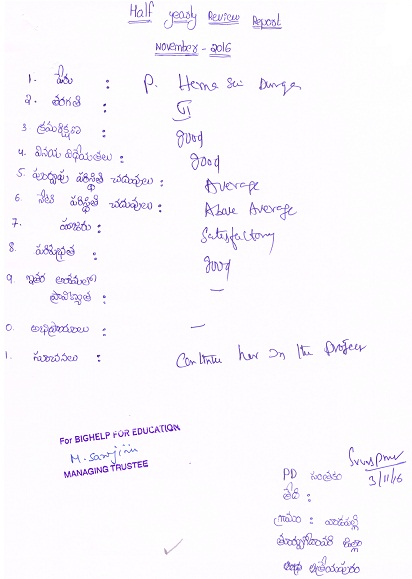 Half yearly Review Report
November - 2016
1. పేరు : P. Hema Sai Durga
2. తరగతి : VI
3 క్రమశిక్షణ : good
4. వినయ విధేయతలు : good
5. పూర్వపు పరిస్థితి చదువులు : Average
6. నేటి పరిస్థితి చదువులు : Above Average
7. హాజరు : Satisfactory
8. పరిశుభ్రత : good
9. ఇతర అంశములలో
ప్రావీణ్యత : —
0. అభిప్రాయములు : —
1. సూచనలు : Continue her in the Project
For BIGHELP FOR EDUCATION
M. Sarojini
MANAGING TRUSTEE
PD సంతకం
3/11/16
తేది :
గ్రామం : వాడపల్లి
తూర్పుగోదావరి జిల్లా
ఆత్రేయపురం